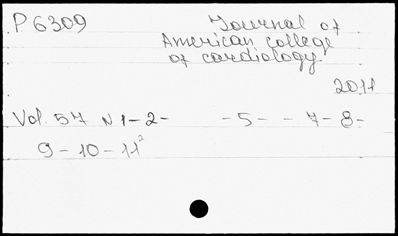 P 6309 Journal of
American college
of cardiology.
2011
Vol. 57 N 1-2- -5- - 7- 8-
9-10-11²